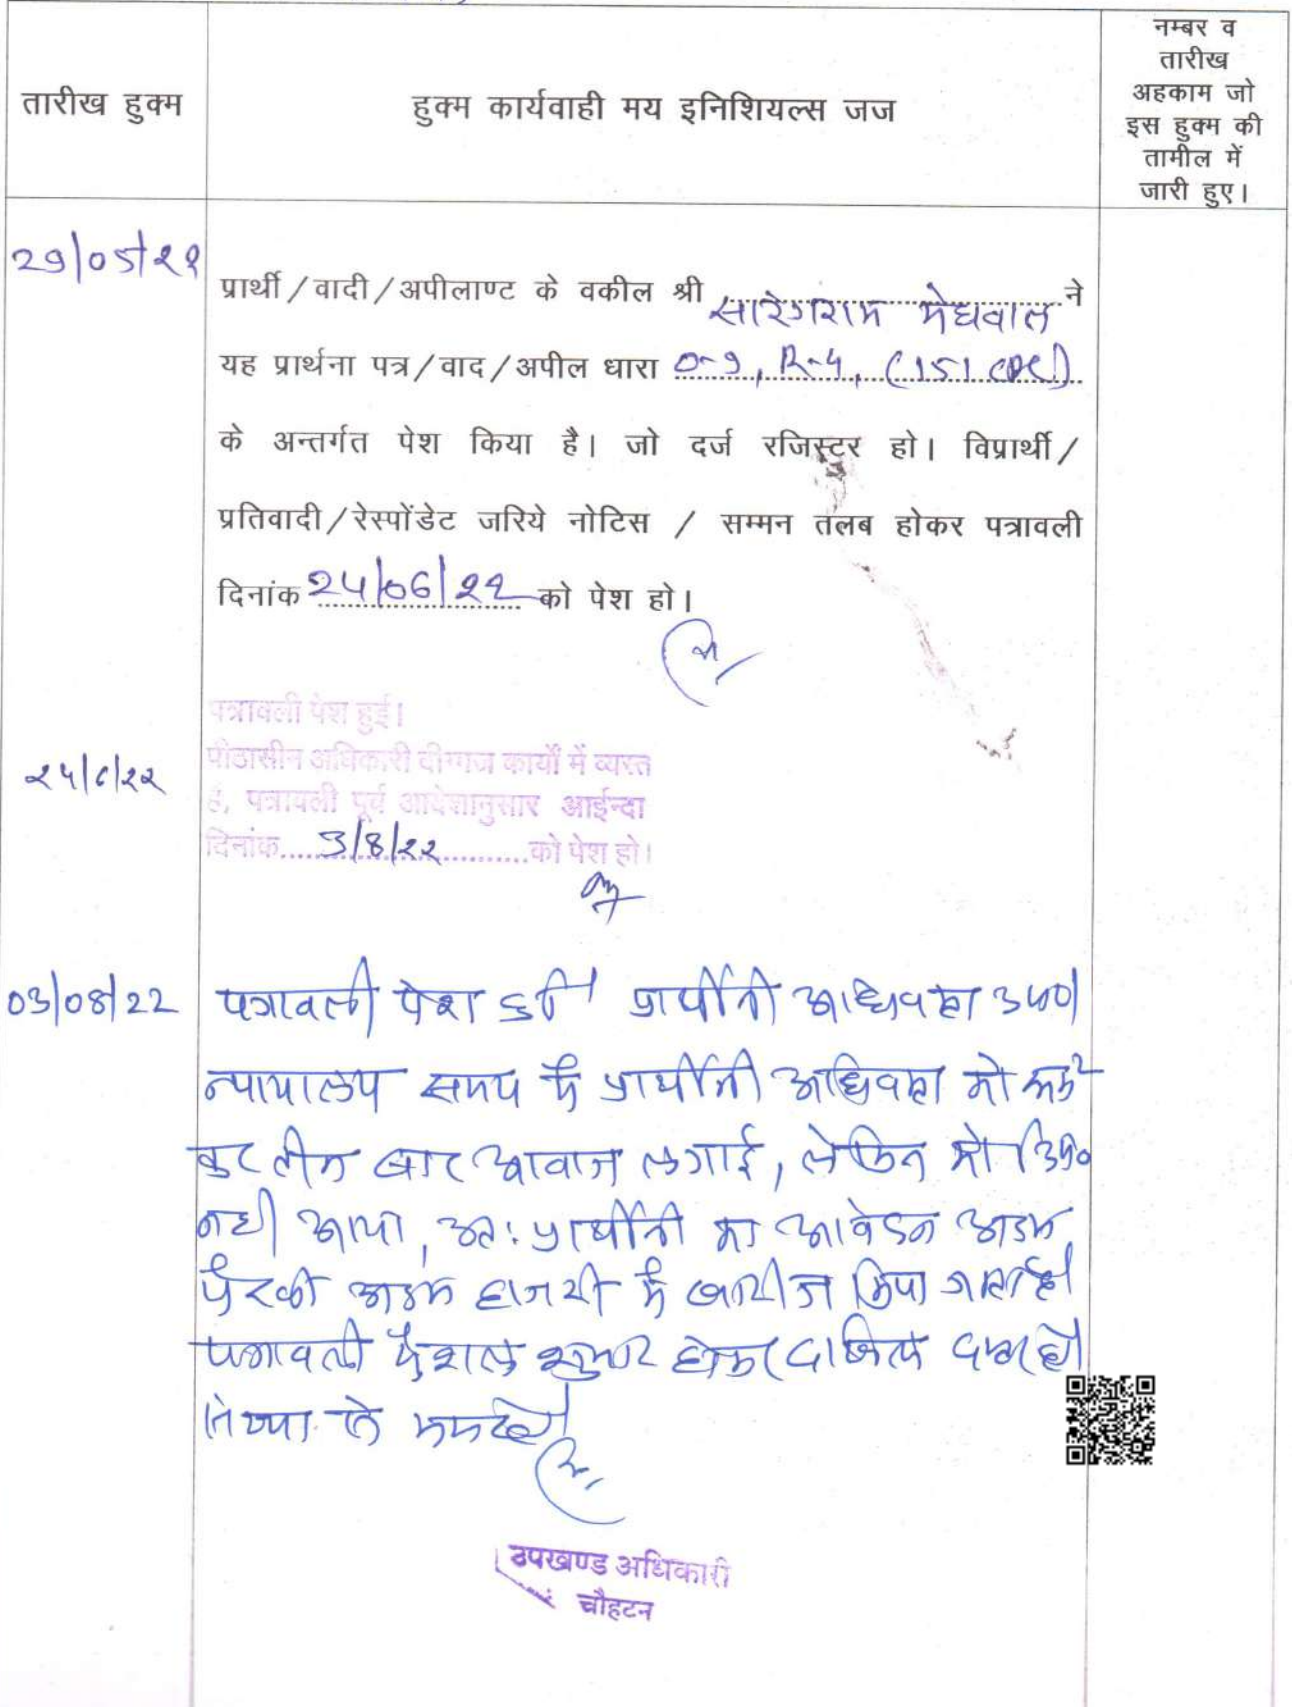 तारीख हुक्म
हुक्म कार्यवाही मय इनिशियल्स जज
नम्बर व
तारीख
अहकाम जो
इस हुक्म की
तामील में
जारी हुए।
29/05/22
प्रार्थी/वादी/अपीलाण्ट के वकील श्री सारंगराम मेघवाल ने
यह प्रार्थना पत्र/वाद/अपील धारा O-9, R-4, (151 CPC)
के अन्तर्गत पेश किया है। जो दर्ज रजिस्टर हो। विप्रार्थी/
प्रतिवादी/रेस्पोंडेट जरिये नोटिस / सम्मन तलब होकर पत्रावली
दिनांक 24/06/22 को पेश हो।
पत्रावली पेश हुई।
24/6/22
पीठासीन अधिकारी दीगाज कार्यों में व्यस्त
है, पत्रावली पूर्व आदेशानुसार आईन्दा
दिनांक 3/8/22 को पेश हो।
03/08/22 पत्रावली पेश हुई। प्रार्थीनी अधिवक्ता अनु०।
न्यायालय समय में प्रार्थीनी अधिवक्ता को
तीन बार आवाज लगाई, लेकिन कोई उप०
नही आया, अतः प्रार्थीनी का आवेदन अदम
पैरवी अदम हाजरी में खारीज किया जाता है।
पत्रावली फैशल शुमार होकर दाखिल दफ्तर हो।
से कम हो।
उपखण्ड अधिकारी
चौहटन